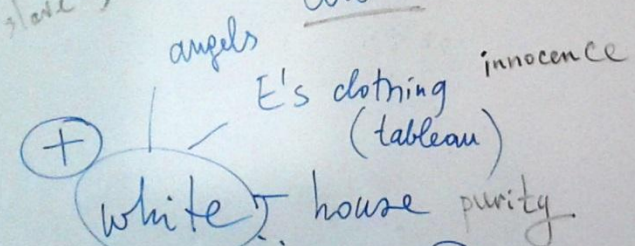 slave
angels
innocence
E's clothing
(tableau)
+
white - house purity